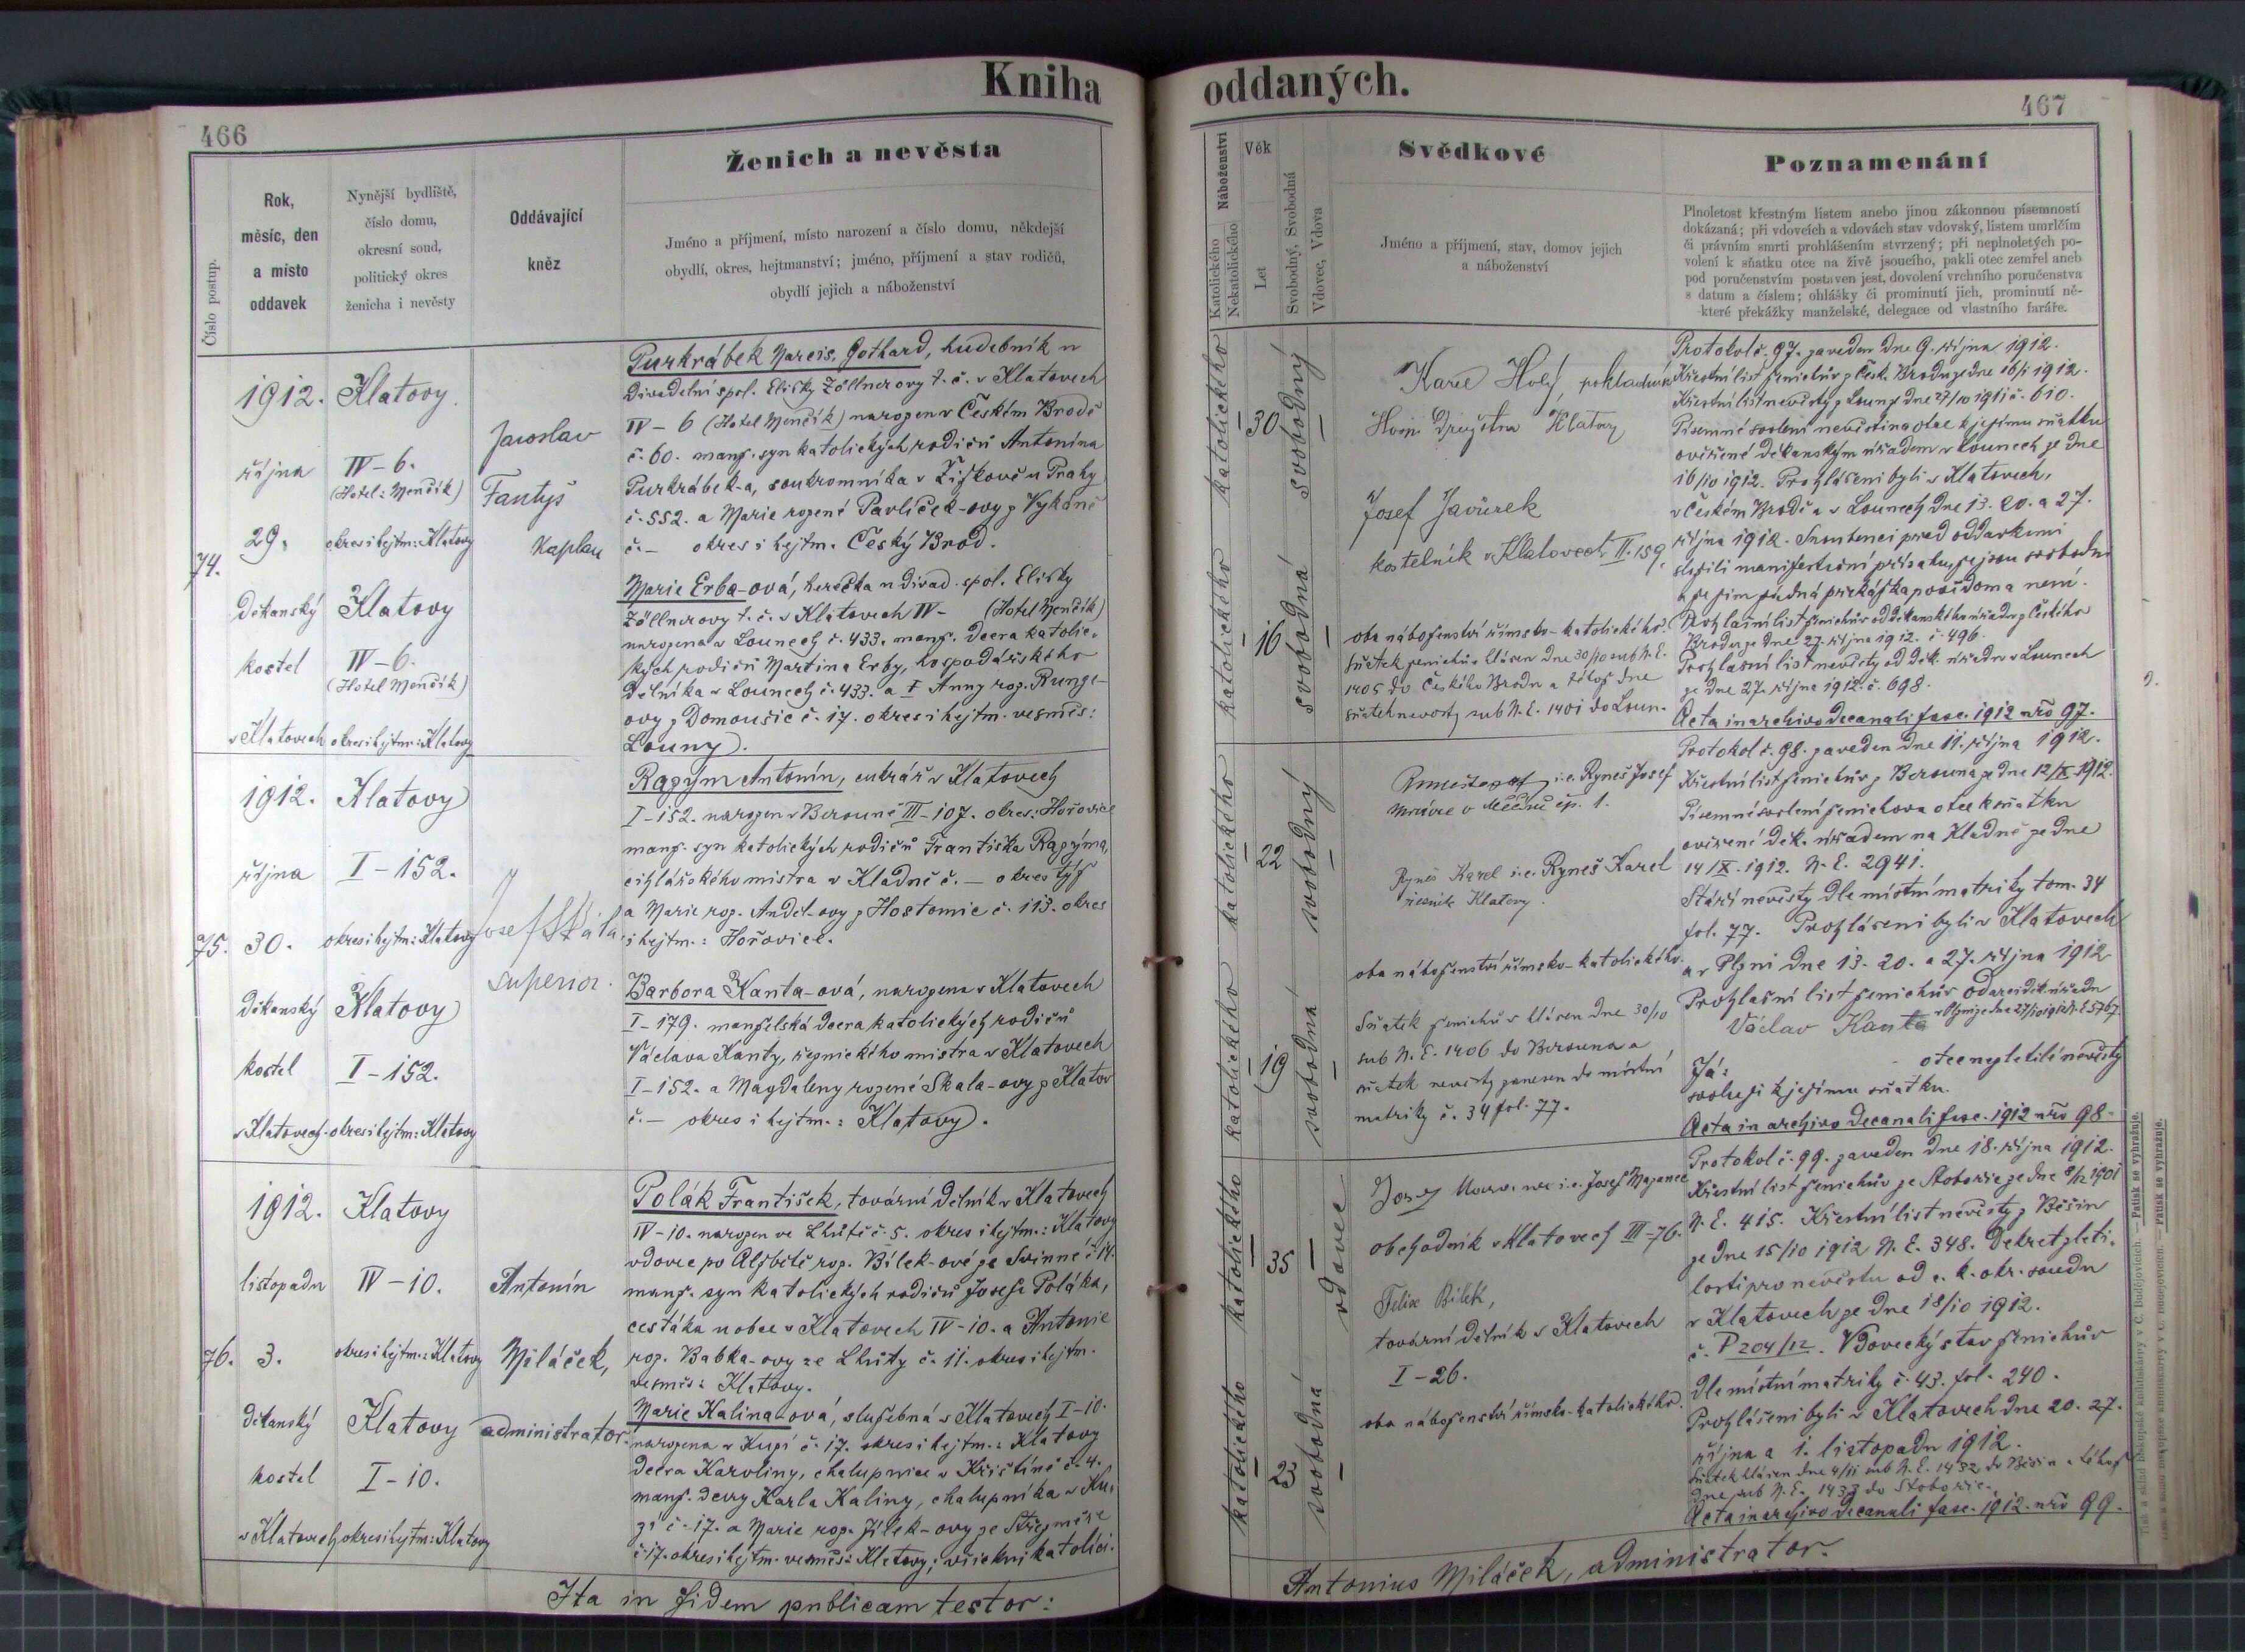 Kniha
oddaných.
466
467
Číslo postup.
Rok,
měsíc, den
a místo
oddavek
Nynější bydliště,
číslo domu,
okresní soud,
politický okres
ženicha i nevěsty
Oddávající
kněz
Ženich a nevěsta
Jméno a příjmení, místo narození a číslo domu, někdejší
obydlí, okres, hejtmanství; jméno, příjmení a stav rodičů,
obydlí jejich a náboženství
Náboženství
Katolického
Nekatolického
Věk
Let
Svobodný, Svobodná
Vdovec, Vdova
Svědkové
Jméno a příjmení, stav, domov jejich
a náboženství
Poznamenání
Plnoletost křestným listem anebo jinou zákonnou písemností
dokázaná; při vdovcích a vdovách stav vdovský, listem umrlčím
či právním smrti prohlášením stvrzený; při neplnoletých po-
volení k sňatku otce na živě jsoucího, pakli otec zemřel aneb
pod poručenstvím postaven jest, dovolení vrchního poručenstva
s datum a číslem; ohlášky či prominutí jich, prominutí ně-
které překážky manželské, delegace od vlastního faráře.
74.
1912.
října
29.
děkanský
kostel
v Klatovech
Klatovy
IV-6.
(Hotel: Menčík)
okres i hejtm: Klatovy
Klatovy
IV-6.
(Hotel Menčík)
okres i hejtm: Klatovy
Jaroslav
Fantyš
kaplan
Purkrábek Narcis. Gothard, hudebník u
divadelní spol. Elišky Zöllnerovy t. č. v Klatovech
IV-6 (Hotel Menčík) narozen v Českém Brodě
č. 60. manž. syn katolických rodičů Antonína
Purkrábek-a, soukromníka v Žižkově u Prahy
č. 552. a Marie rozené Pavlíček-ovy z Vykáně
č. - okres i hejtm. Český Brod.
Marie Erba-ová, herečka u divad. spol. Elišky
Zöllnerovy t. č. v Klatovech IV- (Hotel Menčík)
narozena v Lounech č. 433. manž. dcera katolic-
kých rodičů Martina Erby, hospodářského
dělníka v Lounech č. 433. a I Anny roz. Runge-
ovy z Domoušic č. 17. okres i hejtm. vesměs:
Louny.
katolického
katolického
30
16
svobodný
svobodná
Karel Holý, pokladník
Hosp. družstva Klatovy
Josef Javůrek
kostelník v Klatovech II. 159.
oba náboženství římsko-katolického.
Sňatek ženichův hlášen dne 30/10 sub N. E.
1405 do Českého Brodu a téhož dne
sňatek nevěsty sub N. E. 1401 do Loun.
Protokol č. 97. zaveden dne 9. října 1912.
Křestní list ženichův z Česk. Brodu ze dne 16/1 1912.
Křestní list nevěsty z Loun ze dne 27/10 1911 č. 610.
Písemné svolení nevěstina otce k jejímu sňatku
ověřené děkanským úřadem v Lounech ze dne
16/10 1912. Prohlášeni byli v Klatovech,
v Českém Brodě a v Lounech dne 13. 20. a 27.
října 1912. Snoubenci před oddavkami
složili manifestační přísahu, že jsou svobodni
a že jim žádná překážka povědoma není.
Prohlašní list ženichův od děkanského úřadu z Českého
Brodu ze dne 27. října 1912. č. 496.
Prohlašní list nevěsty od děk. úřadu v Lounech
ze dne 27. října 1912. č. 698.
Acta in archivo decanali fasc. 1912 nro 97.
75.
1912.
října
30.
děkanský
kostel
v Klatovech
Klatovy
I-152.
okres i hejtm: Klatovy
Klatovy
I-152.
okres i hejtm: Klatovy
Josef
superior.
Razým Antonín, cukrář v Klatovech
I-152. narozen v Berouně III-107. okres: Hořovice
manž. syn katolických rodičů Františka Razýma,
cihlářského mistra v Kladně č. - okres týž
a Marie roz. Anděl-ovy z Hostomic č. 113. okres
i hejtm.: Hořovice.
Barbora Kanta-ová, narozena v Klatovech
I-179. manželská dcera katolických rodičů
Václava Kanty, řeznického mistra v Klatovech
I-152. a Magdaleny rozené Skala-ovy z Klatov
č. - okres i hejtm.: Klatovy.
katolického
katolického
22
19
svobodný
svobodná
i.e. Ryneš Josef
čp. 1.
Ryneš Karel i.e. Ryneš Karel
řezník Klatovy.
oba náboženství římsko-katolického.
Sňatek ženichův hlášen dne 30/10
sub N. E. 1406 do Berouna a
sňatek nevěsty zanesen do místní
matriky č. 34 fol. 77.
Protokol č. 98. zaveden dne 11. října 1912.
Křestní list ženichův z Berouna ze dne 12/IX. 1912.
Písemné svolení ženichova otce k sňatku
ověřené děk. úřadem na Kladně ze dne
14/X. 1912. N. E. 2941.
Stáří nevěsty dle místní matriky tom. 34
fol. 77. Prohlášeni byli v Klatovech
a v Plzni dne 13. 20. a 27. října 1912
Prohlašní list ženichův od arciděk. úřadu
v Plzni ze dne 27/10 1912 N. E. 5767.
Václav Kanta
Já: otec nezletilé nevěsty
svoluji k jejímu sňatku.
Acta in archivo decanali fasc. 1912 nro 98-
76.
1912.
listopadu
3.
děkanský
kostel
v Klatovech
Klatovy
IV-10.
okres i hejtm.: Klatovy
Klatovy
I-10.
okres i hejtm: Klatovy
Antonín
Miláček,
administrator.
Polák František, tovární dělník v Klatovech
IV-10. narozen ve Lhůtě č. 5. okres i hejtm.: Klatovy
vdovec po Alžbětě roz. Bílek-ové ze Svinné č. 14.
manž. syn katolických rodičů Josefa Poláka,
cestáka u obce v Klatovech IV-10. a Antonie
roz. Babka-ovy ze Lhůty č. 11. okres i hejtm.
vesměs: Klatovy.
Marie Kalina-ová, služebná v Klatovech I-10.
narozena v Kuzí č. 17. okres i hejtm.: Klatovy
dcera Karoliny, chalupnice v Křištíně č. 4.
manž. dcery Karla Kaliny, chalupníka v Ku-
zí č. 17. a Marie roz. Jílek-ovy ze Střezměře
č. 17. okres i hejtm. vesměs: Klatovy; všickni katolíci.
katolického
katolického
35
23
vdovec
svobodná
i.e. Josef Majanec
obchodník v Klatovech III-76.
Felix Bílek,
tovární dělník v Klatovech
I-26.
oba náboženství římsko-katolického.
Protokol č. 99. zaveden dne 18. října 1912.
Křestní list ženichův ze Stobořic ze dne 9/12 1901
N. E. 415. Křestní list nevěsty z Běšin
ze dne 15/10 1912 N. E. 348. Dekret zleti-
losti pro nevěstu od c. k. okr. soudu
v Klatovech ze dne 18/10 1912.
č. P 204/12. Vdovecký stav ženichův
dle místní matriky č. 43. fol. 240.
Prohlášeni byli v Klatovech dne 20. 27.
října a 1. listopadu 1912.
Sňatek hlášen dne 4/11 sub N. E. 1432 do Běšin a téhož
dne sub N. E. 1433 do Stobořic.
Acta in archivo decanali fasc. 1912. nro 99.
Ita in fidem publicam testor:
Antonius Miláček, administrator.
Tisk a sklad biskupské knihtiskárny v Č. Budějovicích. — Patisk se vyhražuje.